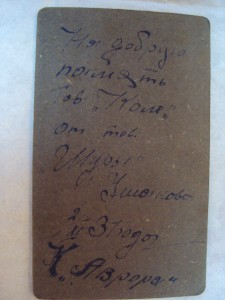 На добрую
память
тов. "Коле"
от тов.
"Шуры"
Ушаково
Звезды
К "Аврора"